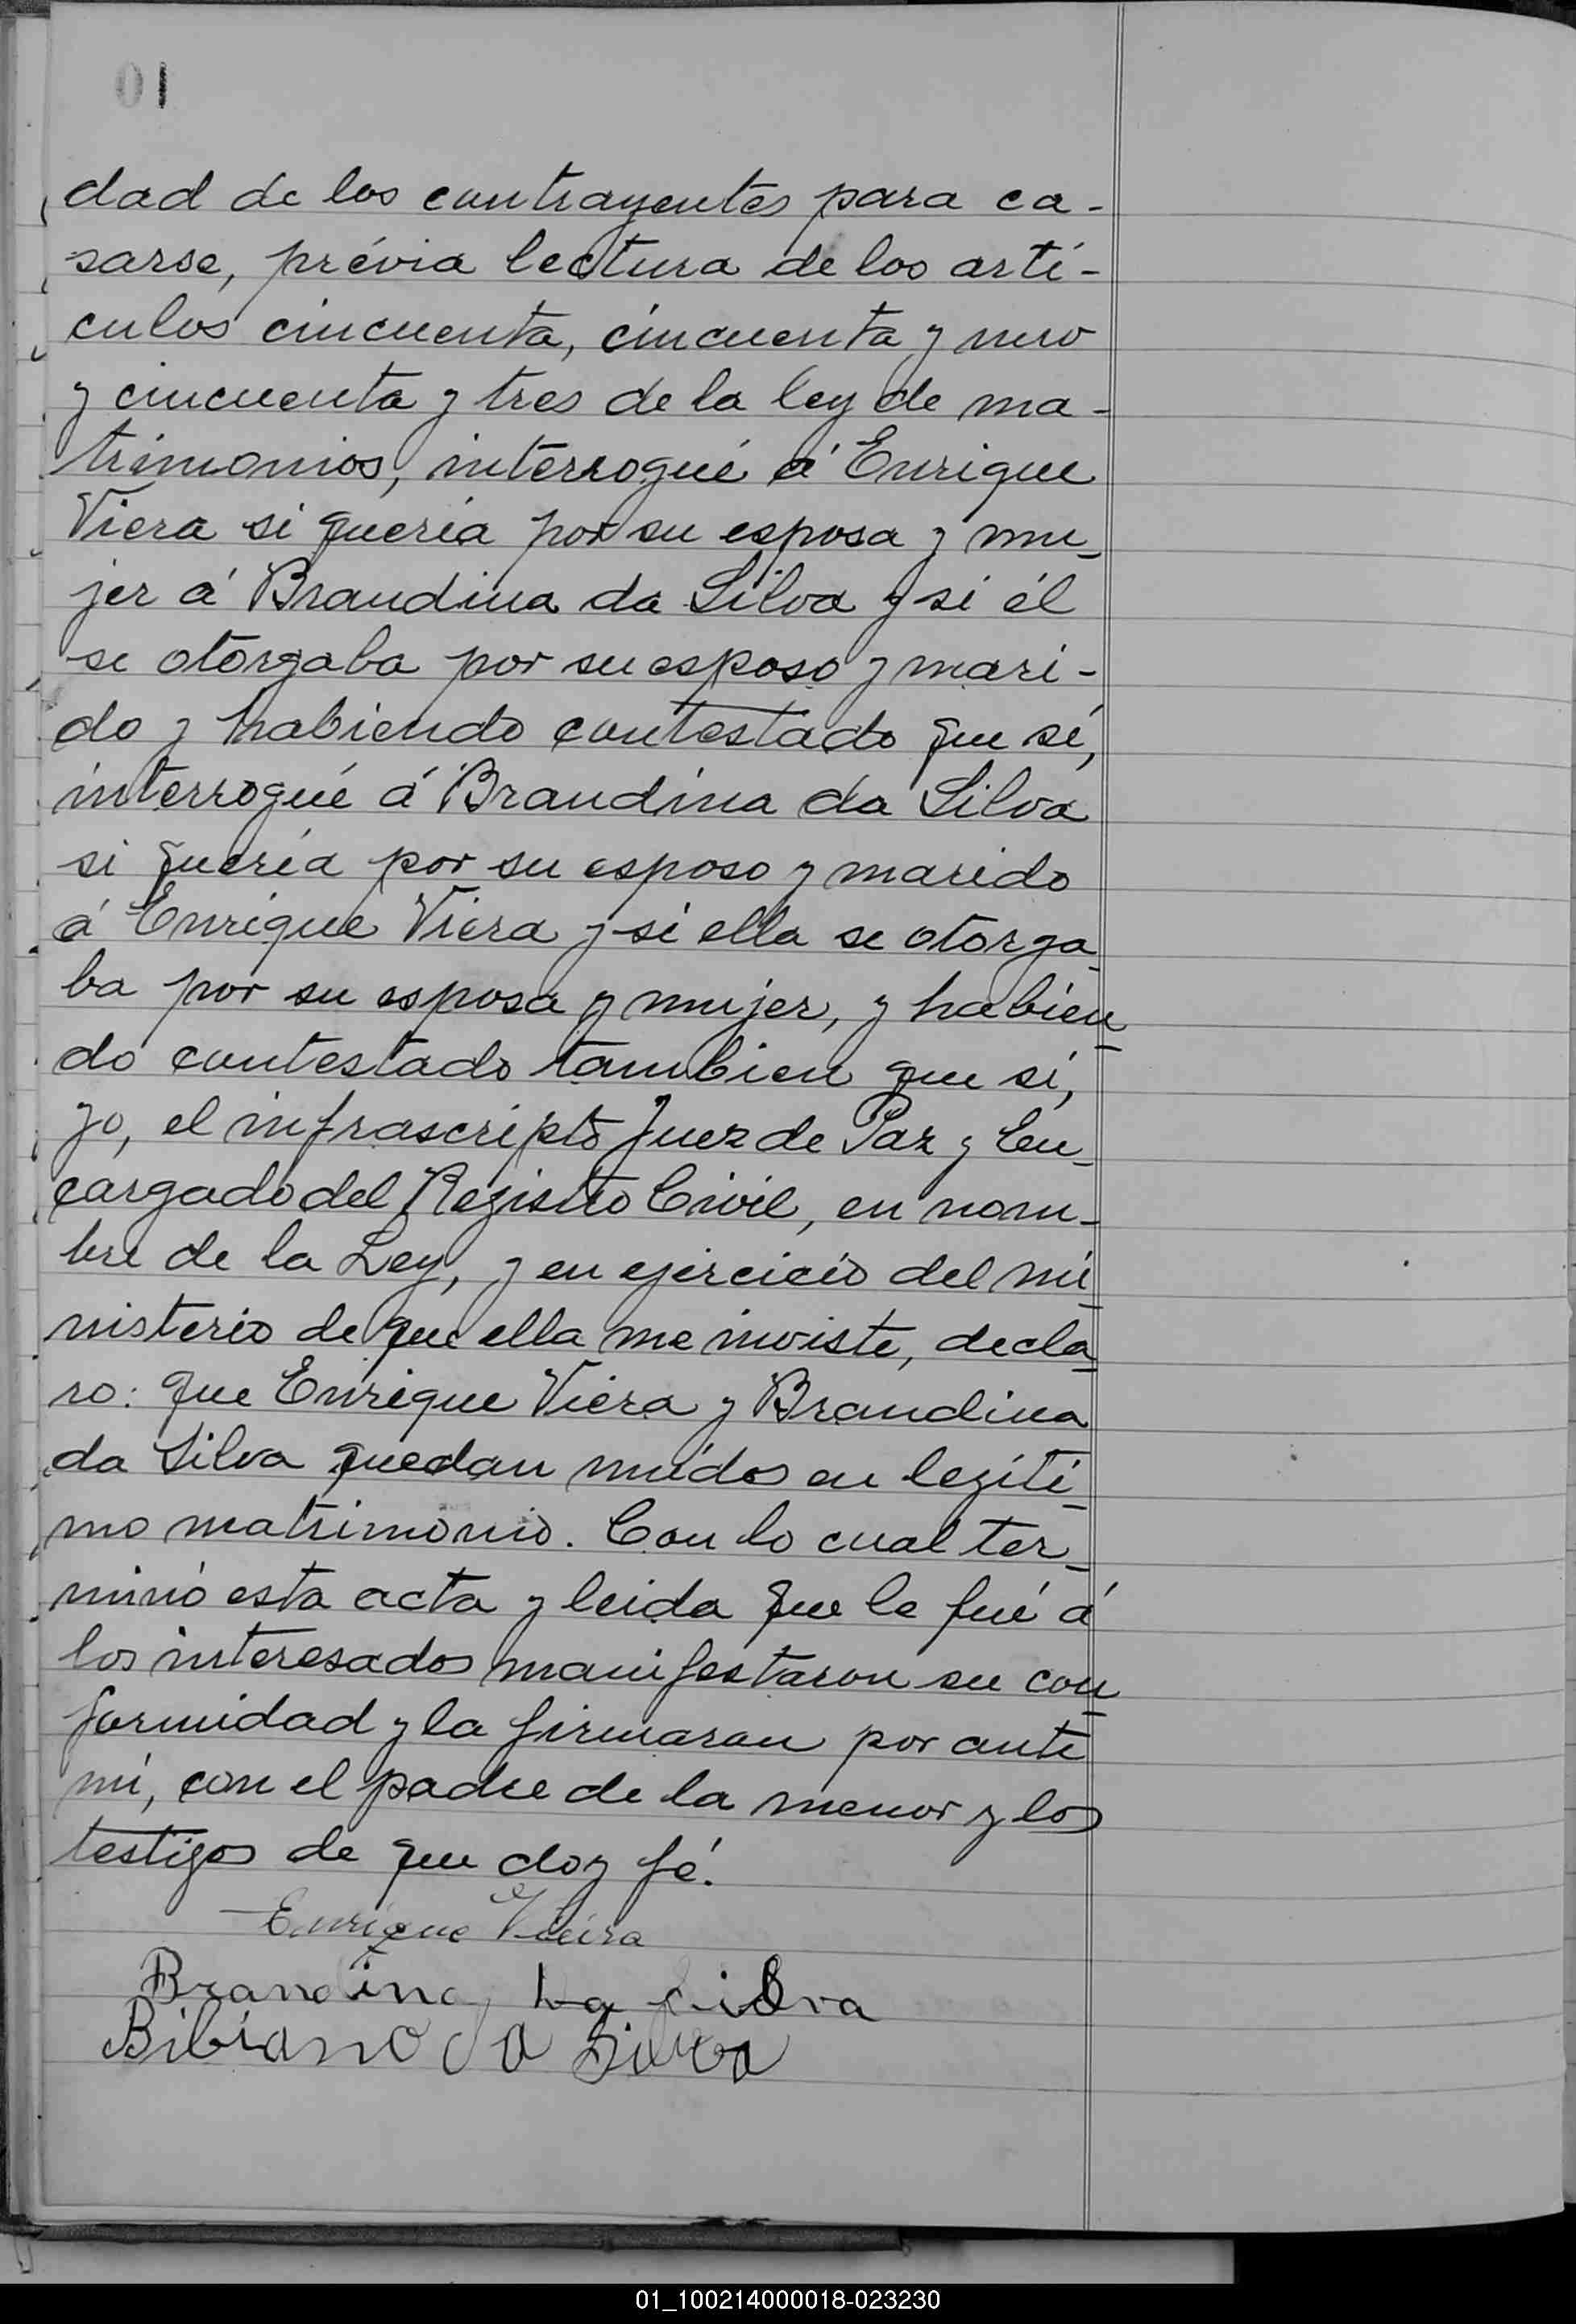 01
dad de los contrayentes para ca-
sarse, prévia lectura de los artí-
culos cincuenta, cincuenta y uno
y cincuenta y tres de la ley de ma-
trimonios, interrogué á Enrique
Viera si quería por su esposa y mu-
jer á Brandina da Silva y si él
se otorgaba por su esposo y mari-
do y habiendo contestado que sí,
interrogué á Brandina da Silva
si quería por su esposo y marido
á Enrique Viera y si ella se otorga-
ba por su esposa y mujer, y habien-
do contestado tambien que sí,
yo, el infrascripto Juez de Paz y En-
cargado del Registro Civil, en nom-
bre de la Ley, y en ejercicio del mi-
nisterio de que ella me inviste, decla-
ro: que Enrique Viera y Brandina
da Silva quedan unidos en legíti-
mo matrimonio. Con lo cual ter-
minó esta acta y leida que le fué á
los interesados manifestaron su con-
formidad y la firmaron por ante
mí, con el padre de la menor y los
testigos de que doy fé.
Enrique Vieira
Brandina da Silva
Bibiano da Silva
01_100214000018-023230